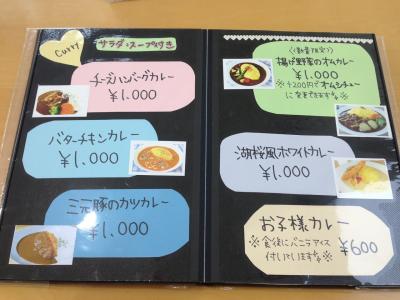 Curry
サラダ・スープ付き
チーズハンバーグカレー
¥1,000
バターチキンカレー
¥1,000
三元豚のカツカレー
¥1,000
(数量限定)
揚げ野菜のオムカレー
¥1,000
※+200円でオムシチュー
に変更できます※
湖桜風ホワイトカレー
¥1,000
お子様カレー
※食後にバニラアイス
付いています※
¥600